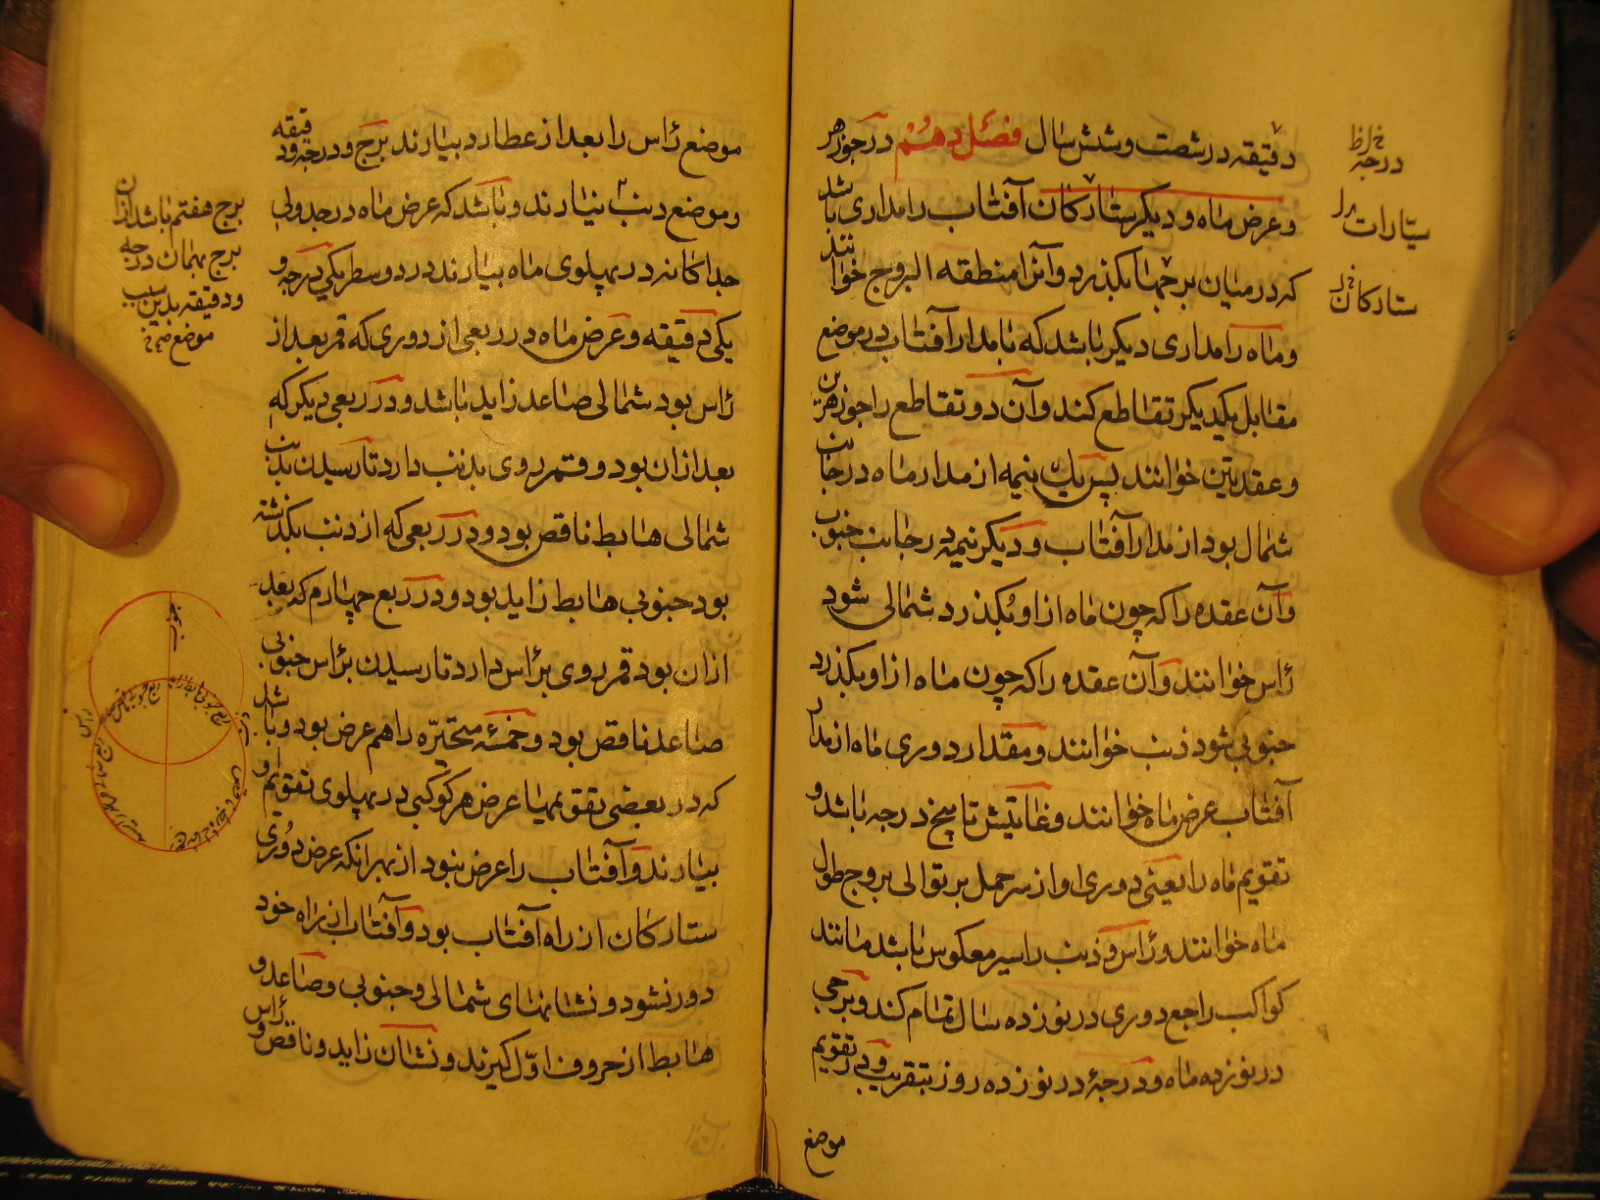 دقیقه در شصت و شش سال فصل دهم در جوزهر
و عرض ماه و دیگر ستارکان آفتاب را مداری باشد
که در میان برجها بکذرد و آنرا منطقه البروج خوانند
و ماه را مداری دیکر باشد که با مدار آفتاب در موضع
مقابل یکدیکر تقاطع کند و آن دو تقاطع را جوزهرین
و عقدتین خوانند پس یک نیمه از مدار ماه در جانب
شمال بود از مدار آفتاب و دیکر نیمه در جانب جنوب
و آن عقده را که چون ماه ازو بکذرد شمالی شود
رأس خوانند و آن عقده را که چون ماه ازو بکذرد
جنوبی شود ذنب خوانند و مقدار دوری ماه از مدار
آفتاب عرض ماه خوانند و غایتش تا پنج درجه باشد و
تقویم ماه را یعنی دوری او از سر حمل بر توالی بروج طول
ماه خوانند و رأس و ذنب را سیر معکوس باشد مانند
کواکب راجع دوری در نوزده سال تمام کند و برجی
در نوزده ماه و درجهٔ در نوزده روز بتقریب و در تقویم
موضع
درجه
سیارات
ستارکان
موضع رأس را بعد از عطارد بیارند برج و درجه و دقیقه
و موضع ذنب نیارند و باشد که عرض ماه در جدولی
جداکانه در پهلوی ماه بیارند در دو سطر یکی درجه و
یکی دقیقه و عرض ماه در ربعی از دوری که قمر بعد از
رأس بود شمالی صاعد زاید باشد و در ربعی دیکر که
بعد از ان بود و قمر روی بذنب دارد تا رسیدن بذنب
شمالی هابط ناقص بود و در ربعی که از ذنب بکذشته
بود جنوبی هابط زاید بود و در ربع چهارم که بعد
از ان بود قمر روی برأس دارد تا رسیدن برأس جنوبی
صاعد ناقص بود و خمسهٔ متحیّره را هم عرض بود و باشد
که در بعضی تقویمها عرض هر کوکبی در پهلوی تقویم او
بیارند و آفتاب را عرض نبود از بهر انکه عرض دوری
ستارکان از راه آفتاب بود و آفتاب از راه خود
دور نشود و نشانهای شمالی و جنوبی و صاعد و
هابط از حروف اوّل کیرند و نشان زاید و ناقص و رأس
برج هفتم باشد از ان
برج بهمان درجه
و دقیقه بدین سبب
جنوب